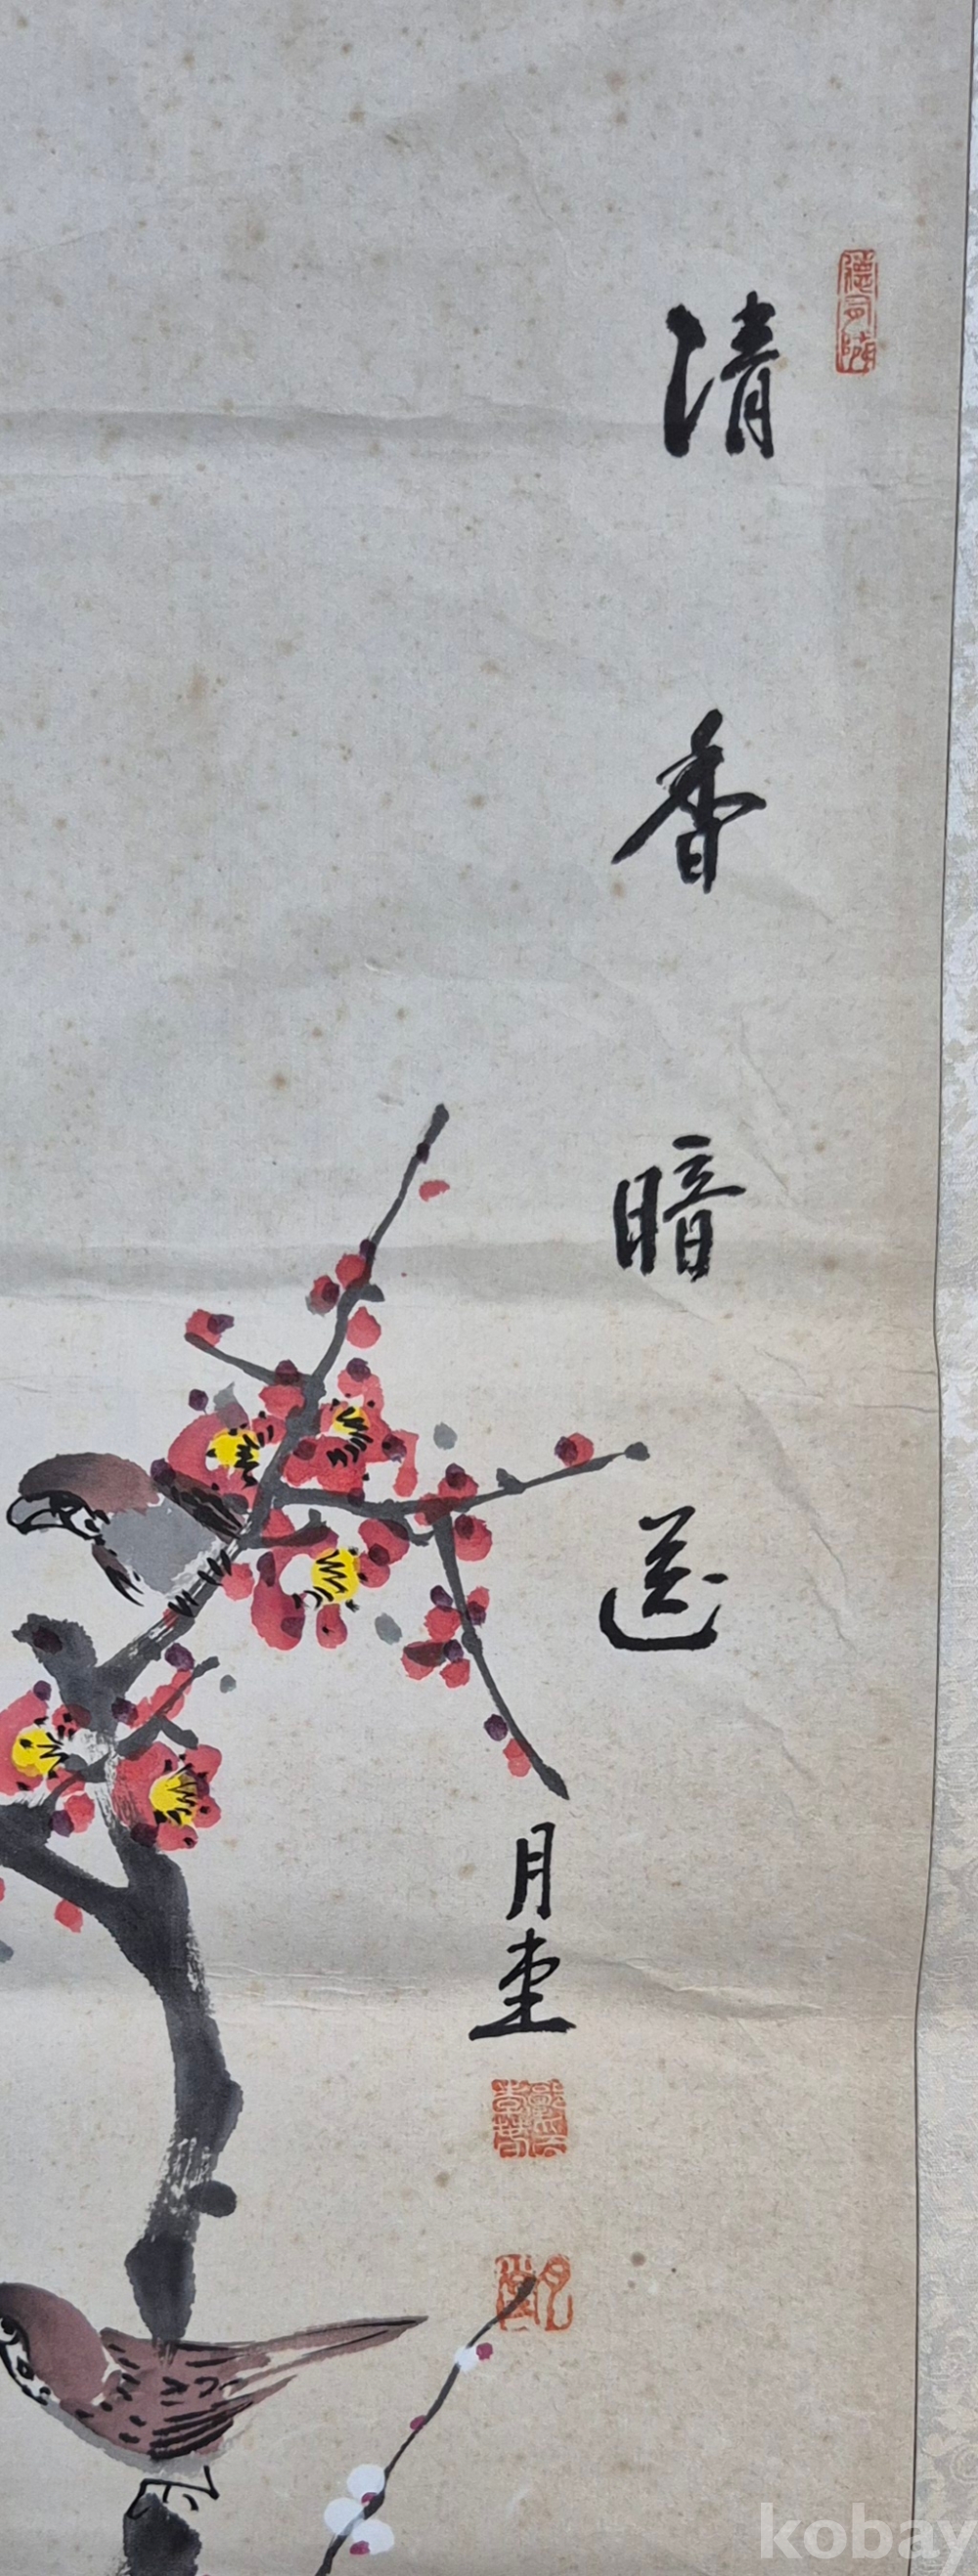 清香暗送
月堂
kobay